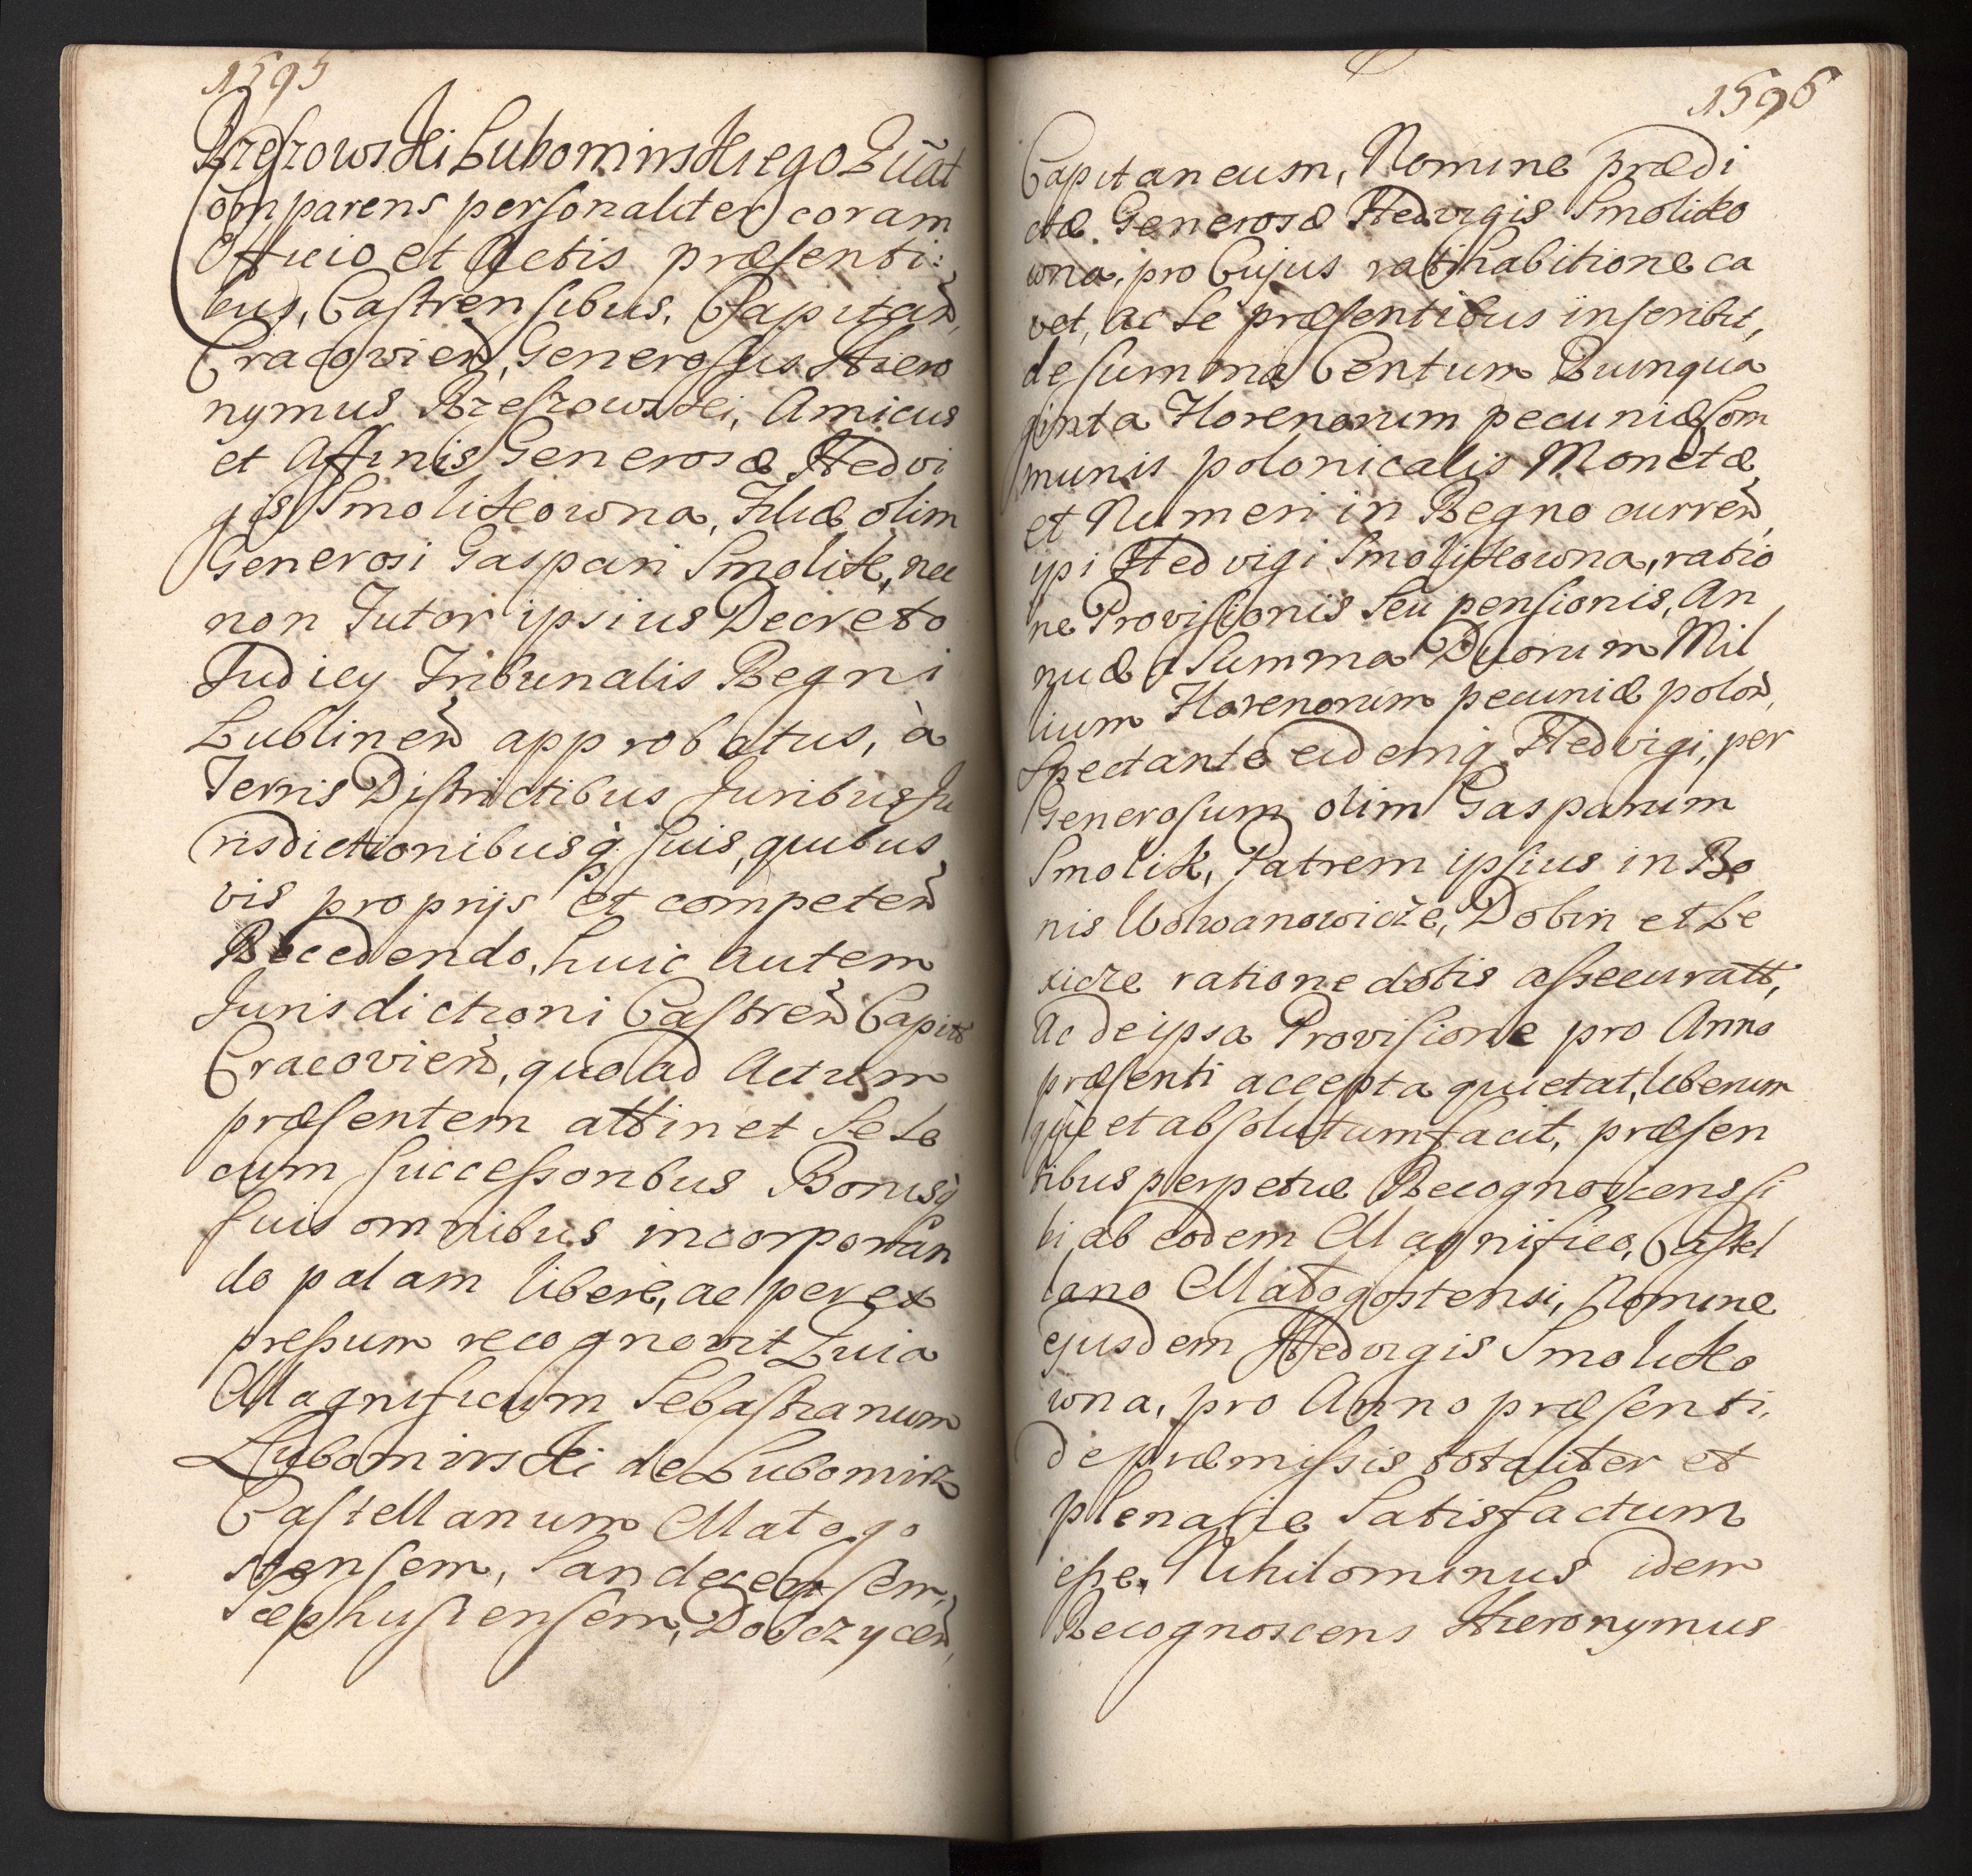 1595
Rzeszowski Lubomirskiego Quat
Comparens personaliter coram
Officio et Actis præsenti:
bus, Castrensibus, Capitan̄,
Cracovien̄, Generosus Hiero
nymus Rzeszowski, Amicus
et Affinis Generosæ Hedvi
gis Smolikowna, Filiæ olim
Generosi Gaspari Smolik, nec
non Tutor ipsius Decreto
Judicy Tribunalis Regni
Lublinen̄ approbatus, à
Terris Districtibus Juribus Ju
risdictionibusq̀ suis, quibus
vis proprijs et competen̄
Recedendo, huic autem
Jurisdictioni Castren̄ Capit
Cracovien̄, quo ad Actum
præsentem attinet Sese
cum successoribus Bonisq̀
suis omnibus incorporan
do palam liberè, ac per ex
pressum recognovit Quia
Magnificum Sebastianum
Lubomirski de Lubomirz
Castellanum Małogo
stensem, Sandecensem,
Scephusiensem, Dobczycen̄,
1596
Capitaneum, Nomine prædi
ctæ Generosæ Hedvigis Smoliko
wna, pro Cujus ratihabitione ca
vet, ac se præsentibus inscribit,
de summa Centum Quinqua
ginta Florenorum pecuniæ Com
munis polonicalis Monetæ
et Numeri in Regno curren̄,
ipsi Hedvigi Smolikowna, ratio
ne Provisionis Seu pensionis, An
nuæ a Summa Duorum Mil
lium Florenorum pecuniæ polon̄,
Spectante eidemq̀ Hedvigi, per
Generosum olim Gasparum
Smolik, Patrem ipsius in Bo
nis Wolwanowicze, Dobin et Le
xicze ratione dotis assecuratt,
Ac de ipsa Provisione pro Anno
præsenti accepta quietat, liberum
que et absolutum facit, præsen
tibus perpetuæ Recognoscens si
bi, ab eodem Magnifico, Castel
lano Małogostensi, Nomine
ejusdem Hedvigis Smoliko
wna, pro Anno præsenti,
de præmissis totaliter et
plenarie Satisfactum
esse, Nihilominus idem
Recognoscens Hieronymus